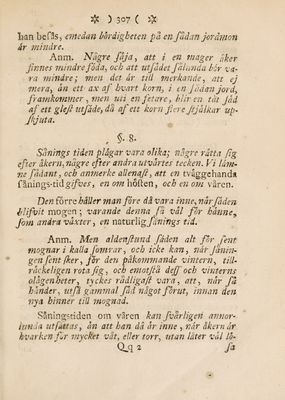 * ) 307 ( *
han besås, emedan bördigheten på en sådan jordmon
är mindre.
Anm. Någre säja, att i en mager åker
finnes mindre föda, och att utsädet sålunda bör va-
ra mindre; men det är till merkande, att ej
mera, än ett ax af hvart korn, i en sådan jord,
framkommer, men uti en fetare, blir en tät säd
af ett glest utsäde, då af ett korn flere stjälkar up-
skjuta.
§. 8.
Sånings tiden plägar vara olika; någre rätta sig
efter åkern, någre efter andra utvärtes tecken. Vi läm-
ne sådant, och anmerke allenast, att en tvåggehanda
sånings-tid gifves, en om hösten, och en om våren.
Den förre håller man före då vara inne, når såden
blifvit mogen; varande denna så väl för hänne,
som andra växter, en naturlig sånings tid.
Anm. Men aldenstund säden alt för sent
mognar i kalla somrar, och icke kan, när sånin-
gen sent sker, för den påkommande vintern, till-
räckeligen rota sig, och emotstå dess och vinterns
olägenheter, tyckes rådligast vara, att, när så
händer, utså gammal säd något förut, innan den
nya hinner till mognad.
Såningstiden om våren kan svårligen annor-
lunda utsättas, än att han då är inne, när åkern är
hvarken för mycket våt, eller torr, utan låter väl lö-
Qq 2 sa